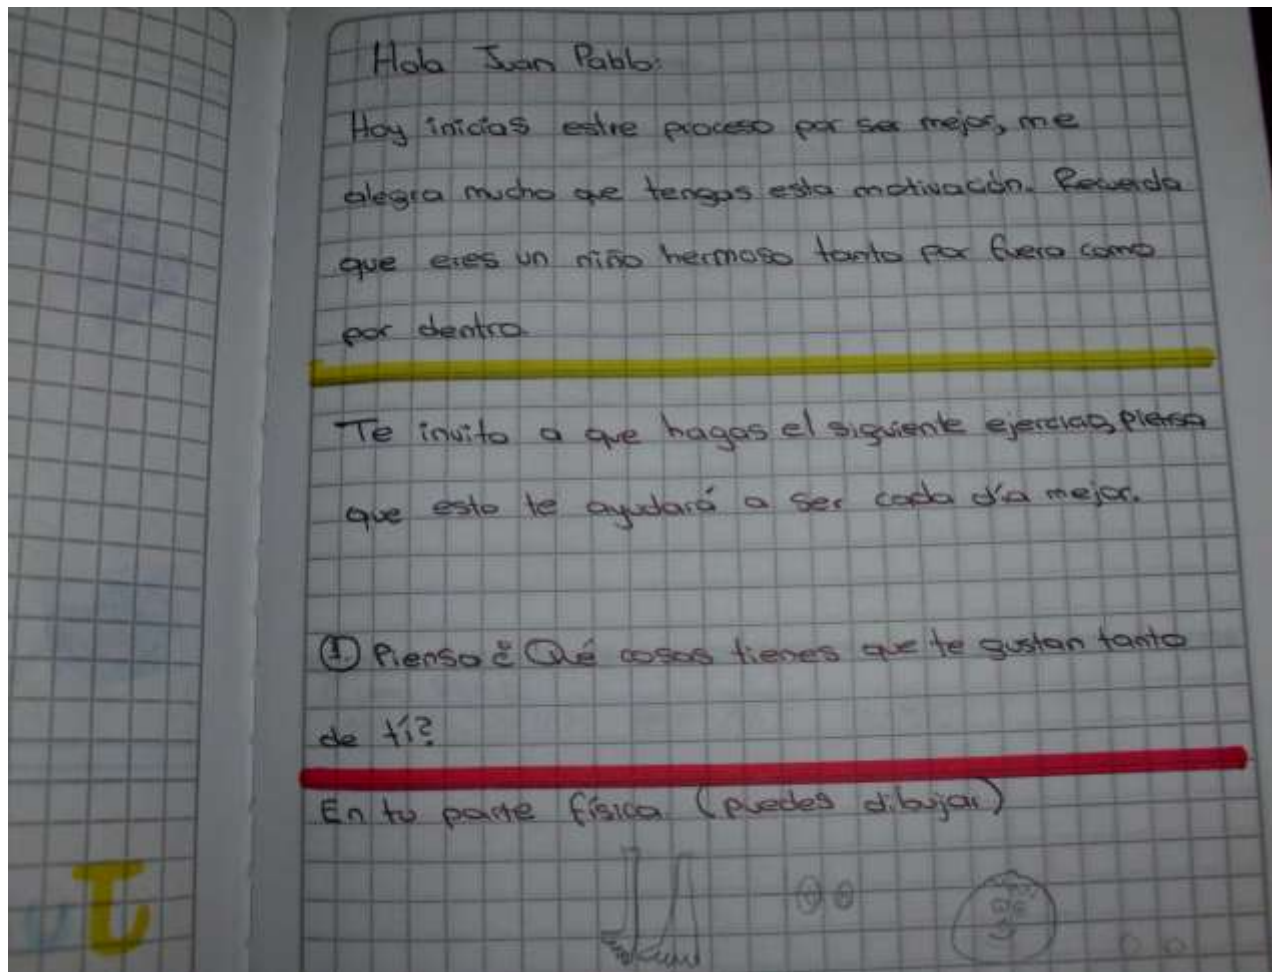 Hola Juan Pablo:
Hoy inicias estre proceso por ser mejor, me
alegra mucho que tengas esta motivación. Recuerda
que eres un niño hermoso tanto por fuera como
por dentro.
Te invito a que hagas el siguiente ejercicio, piensa
que esto te ayudará a ser cada día mejor.
1. Piensa ¿Qué cosas tienes que te gustan tanto
de tí?
En tu parte física (puedes dibujar)